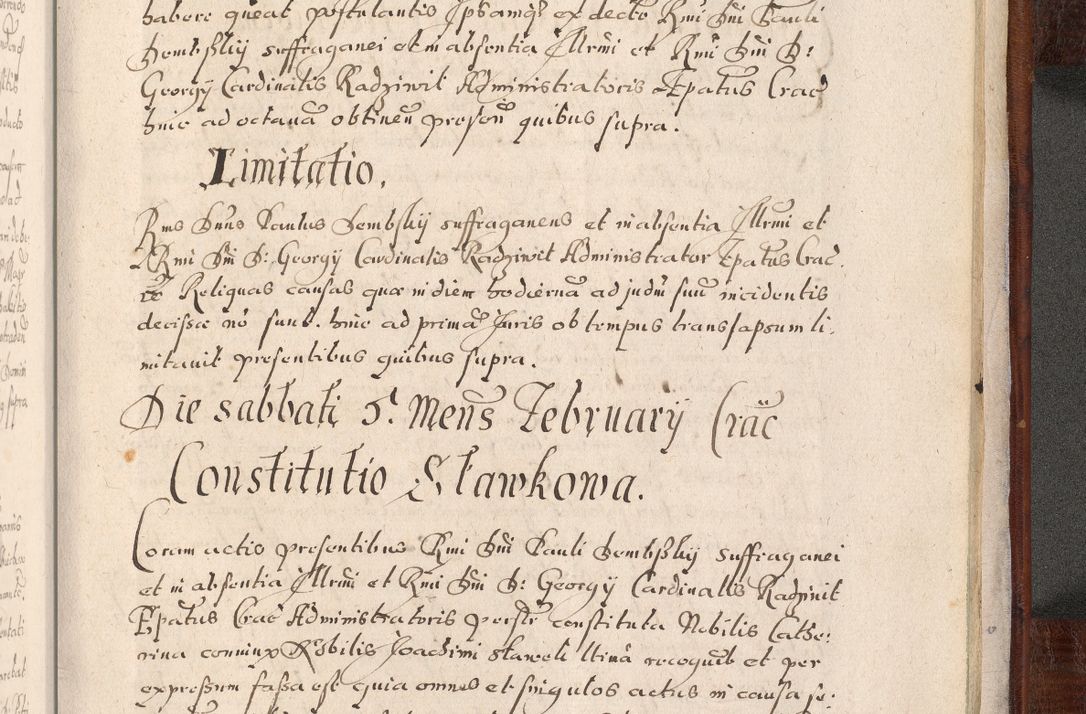 habere queat postulantis Ipsamq3 ex decto Rmi Dni Pauli
Dembskij suffraganei et in absentia Illrmi et Rmi Dni D:
Georgij Cardinalis Radziwil Administratoris Epatus Crac
hinc ad octauã obtinen presen quibus supra.
Limitatio.
Rms Dnus Paulus Dembskij suffraganeus et in absentia Illrmi et
Rmi Dni D: Georgij Cardinalis Radziwil Administrator Epatus Crac.
Reliquas causas quæ in diem hodiernã ad judm suũ incidentis
decissæ nõ sunt. hinc ad primã Juris ob tempus translapsum li,
mitauit presentibus quibus supra.
Die sabbati 5. Mens February Crac
Constitutio Sławkowa.
Coram actis presentibus Rmi Dni Pauli Dembskij suffraganei
et in absentia Illrmi et Rmi Dni D: Georgij Cardinalis Radziwil
Epatus Crac Administratoris personlr constituta Nobilis Cathe:
rina coniunx Nobilis Joachimi recognit et per
expressum fassa est quia omnes et singulos actus in causa se: